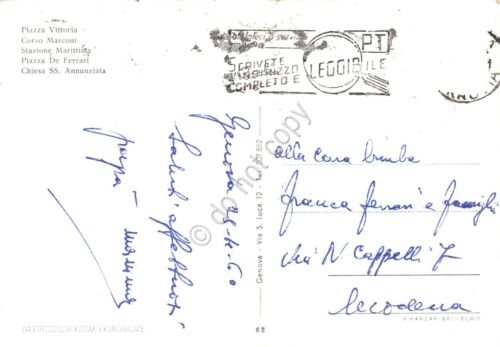 Piazza Vittoria
Corso Marconi
Stazione Marittima
Piazza De Ferrari
Chiesa SS. Annunziata
PT
SCRIVETE
L'INDIRIZZO
COMPLETO E
LEGGIBILE
Genova 25.4.60
Saluti affettuosi
papà mamma
do not copy
Genova - Via S. Luca 12 -
alla cara bimba
Franca Ferrari e famiglia
N. Cappelli 7
Modena
DA FOTOCOLOR KODAK EKTACHROME
62